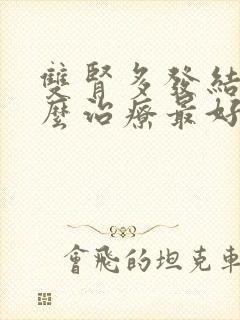 雙腎多發結
麼治療最好
會飛的坦克車